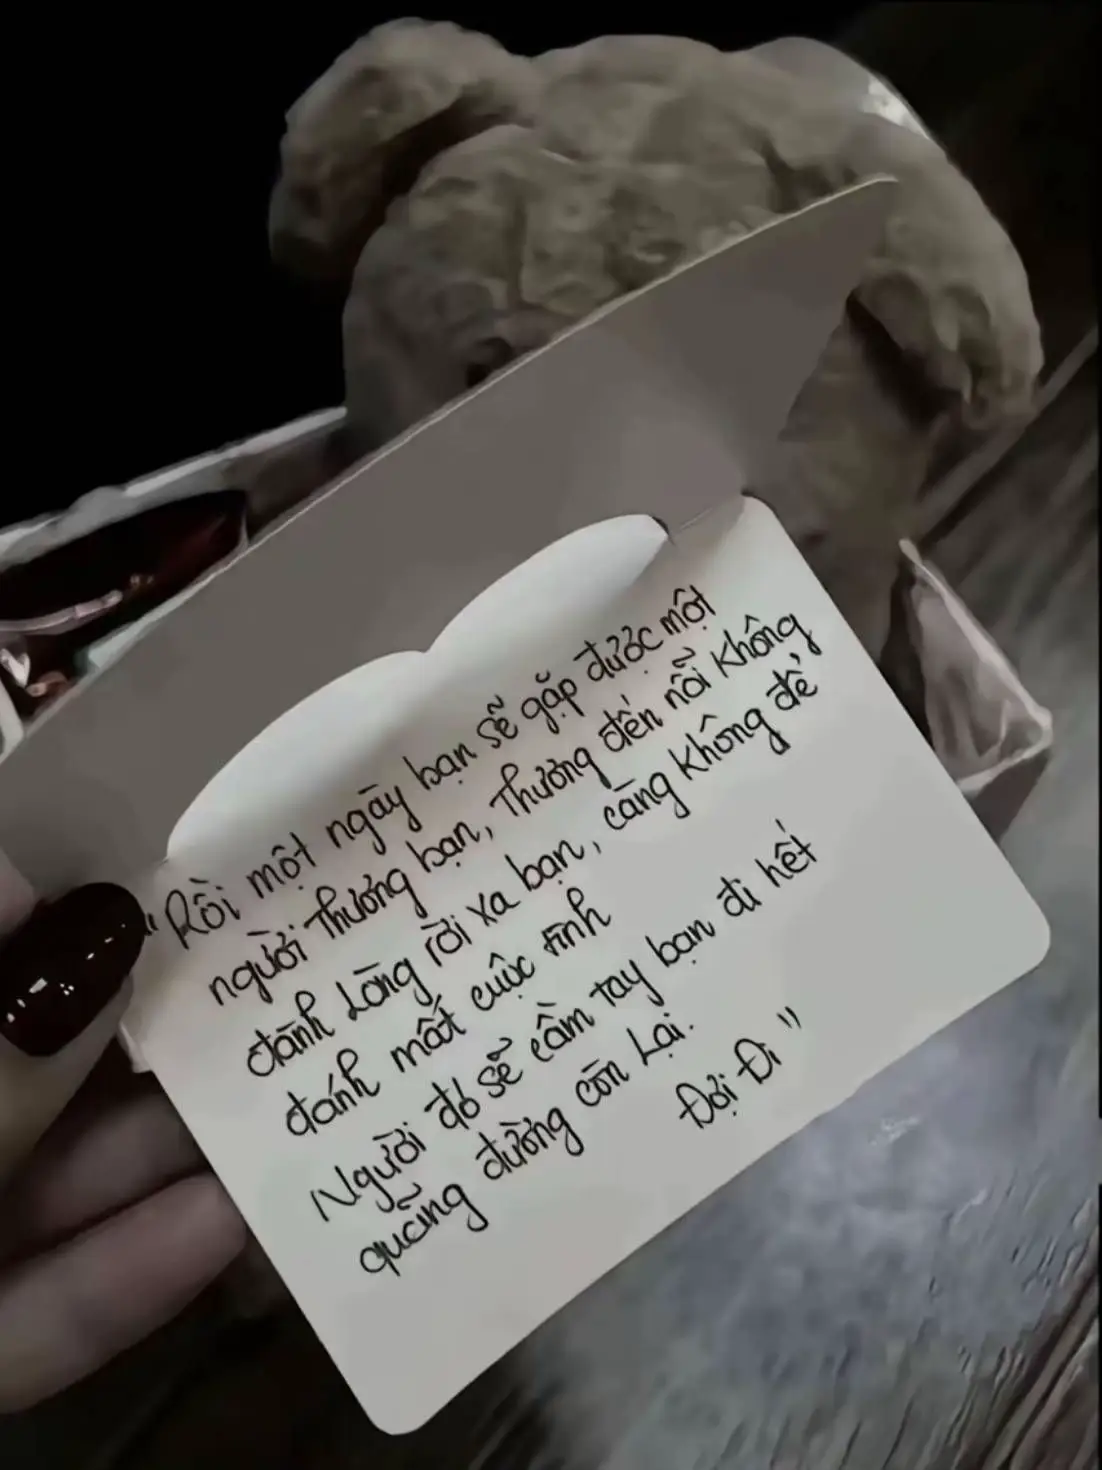 "Rồi một ngày bạn sẽ gặp được một
người thương bạn, thương đến nỗi không
đành lòng rời xa bạn, càng không để
đánh mất cuộc tình
Người đó sẽ cầm tay bạn đi hết
quãng đường còn lại.
Đợi Đi"